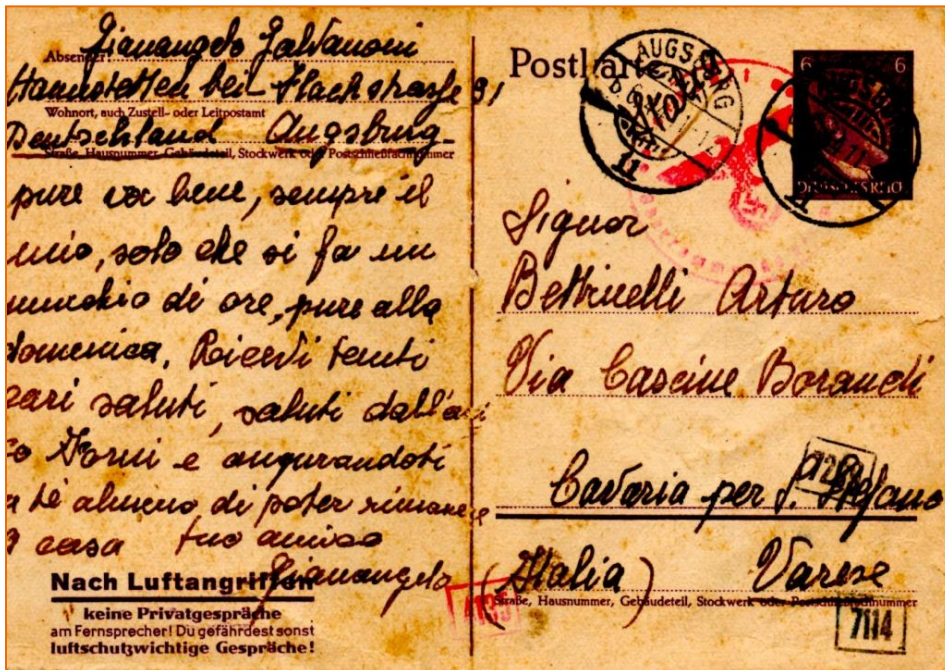 Absender:
Gianangelo Galvanoni
Haunstetten bei Flachstrasse 91
Wohnort, auch Zustell- oder Leitpostamt
Deutschland Augsburg
Straße, Hausnummer, Gebäudeteil, Stockwerk oder Postschließfachnummer
pure va bene, sempre il
mio, solo che si fa un
mucchio di ore, pure alla
domenica. Ricevi tanti
cari saluti, saluti dall'
Forni e augurandoti
a te almeno di poter rimanere
a casa tuo amico
Gianangelo
Nach Luftangriffen
keine Privatgespräche
am Fernsprecher! Du gefährdest sonst
luftschutzwichtige Gespräche!
Postkarte
AUGSBURG
11
6 6
Signor
Bettinelli Arturo
Via Cascine Borandi
Cavaria per S. Stefano
(Italia) Varese
Straße, Hausnummer, Gebäudeteil, Stockwerk oder Postschließfachnummer
7114